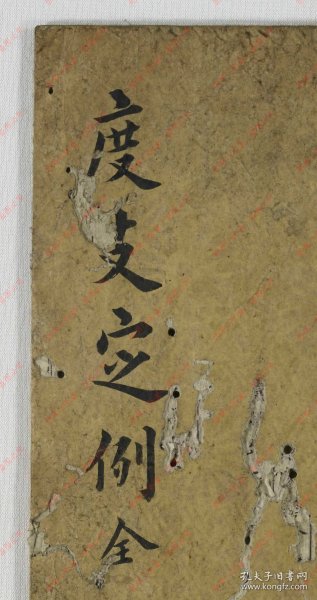 度支定例全
孔夫子旧书网
www.kongfz.com